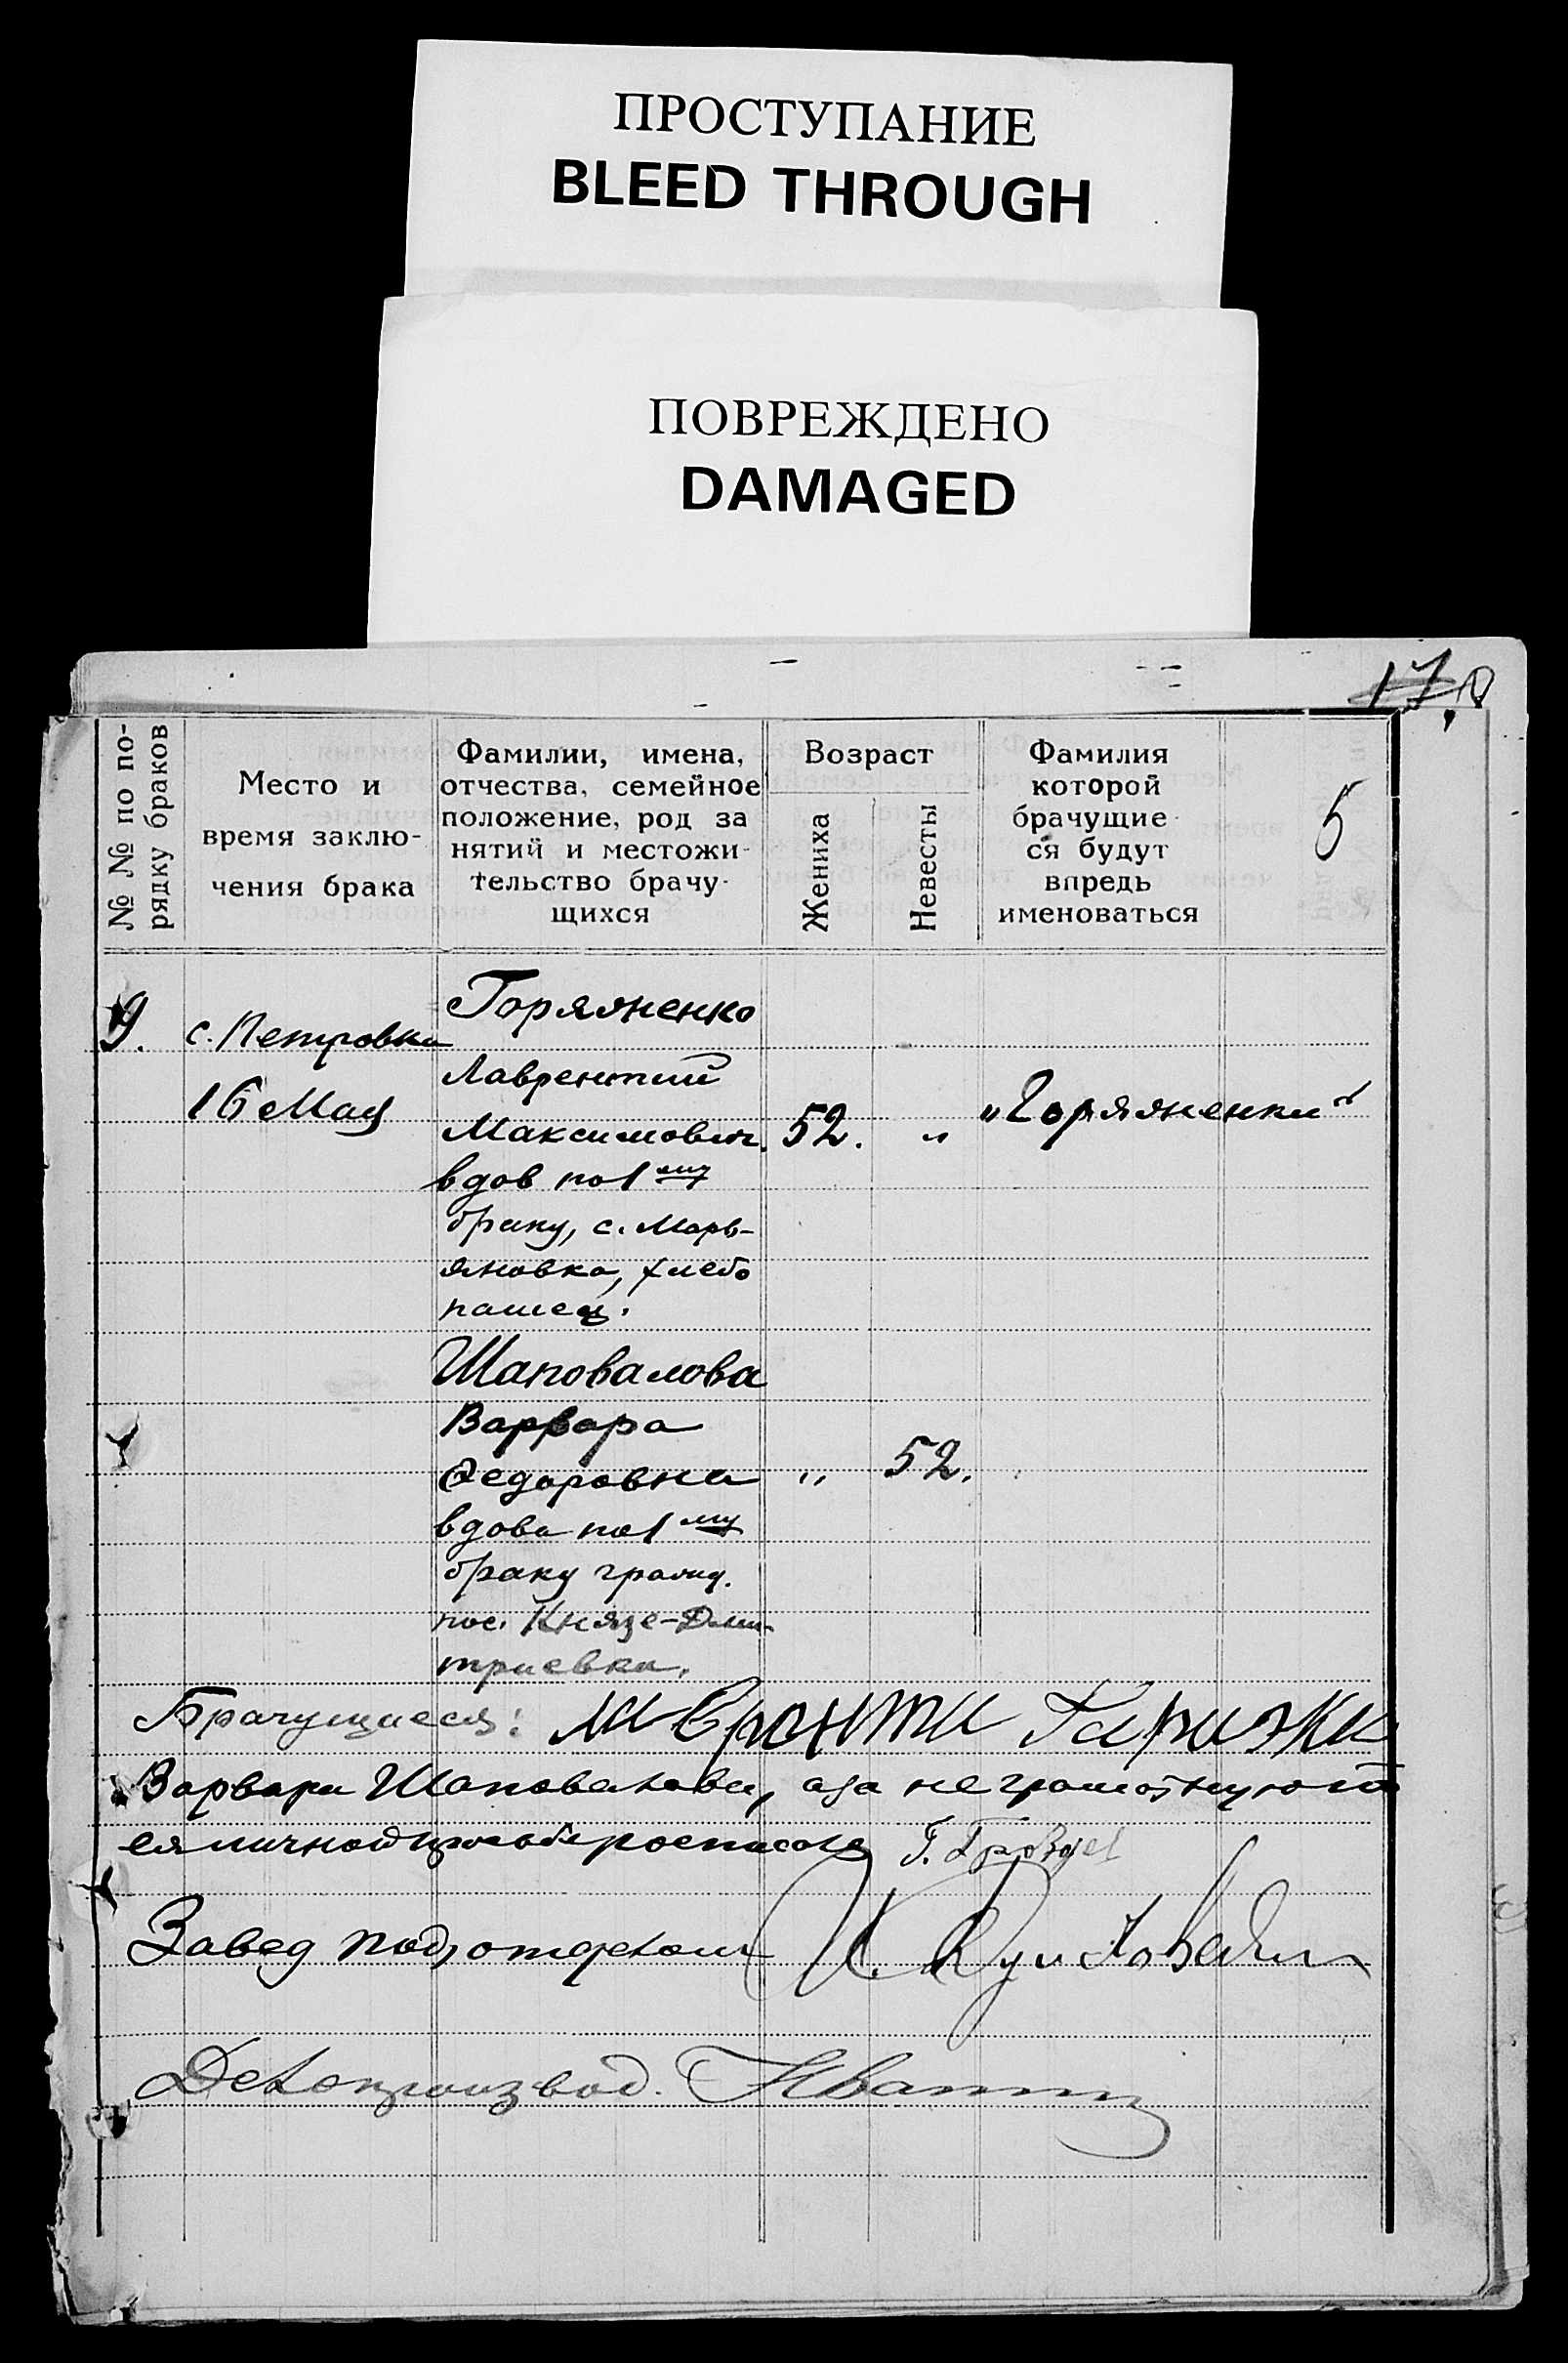 ПРОСТУПАНИЕ
BLEED THROUGH
ПОВРЕЖДЕНО
DAMAGED
17.
№ № по по-
рядку браков
Место и
время заклю-
чения брака
Фамилии, имена,
отчества, семейное
положение, род за
нятий и местожи-
тельство брачу-
щихся
Возраст
Жениха
Невесты
Фамилия
которой
брачущие
ся будут
впредь
именоваться
5
9.
с. Петровка
16 Мая
Горяяненко
Лаврентий
Максимович.
вдов по 1му
браку, с. Марь-
яновка, хлебо
пашец.
52. „
„Горяяненки“
Шаповалова
Варвара
Федоровна
вдова по 1му
браку гражд.
пос. Князе-Дми-
триевка.
„ 52.
Брачущиеся:
Варвара Шаповалова, а за неграмотную по
ея личной просьбе росписался
Завед подотделом
Делопроизвод.